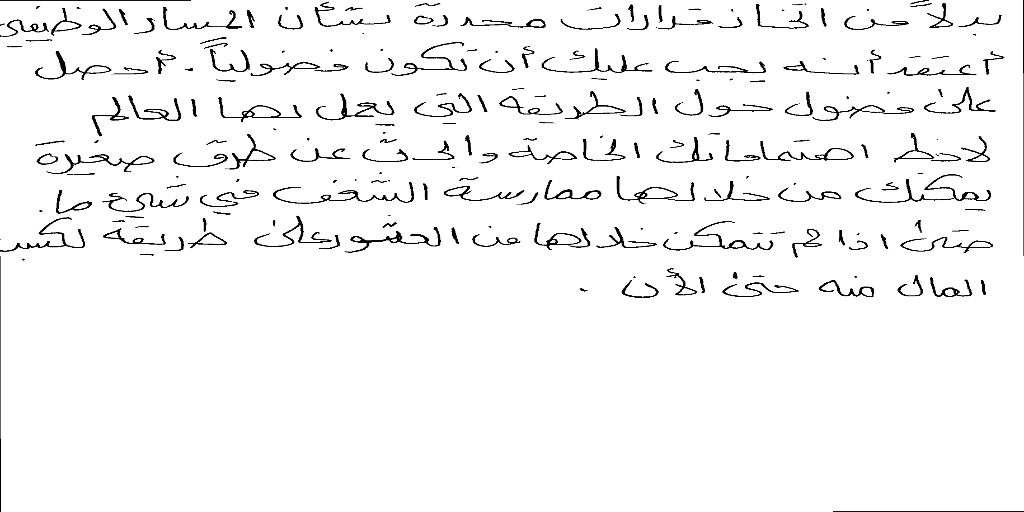 بدلاً من اتخاذ قرارات محددة بشأن المسار الوظيفي
أعتقد أنه يجب عليك أن تكون فضولياً. أحصل
على فضول حول الطريقة التي يعمل بها العالم
لاحظ اهتماماتك الخاصة وابحث عن طرق صغيرة
يمكنك من خلالها ممارسة الشغف في شيء ما.
حتى اذا لم تتمكن خلالها من العثور على طريقة لكسب
المال منه حتى الأن .